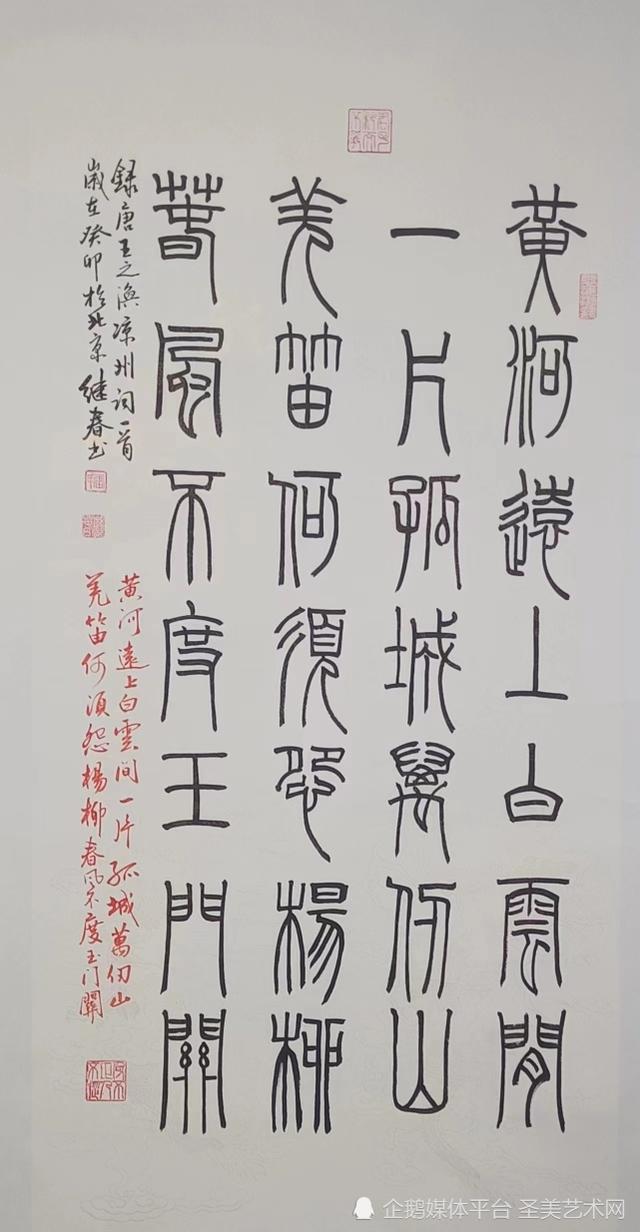 黄河遠上白雲間
一片孤城萬仞山
羌笛何須怨楊柳
春風不度玉門關
録唐王之渙凉州词一首
歲在癸卯於北京继春书
黄河遠上白雲间一片孤城萬仞山
羌笛何須怨楊柳春风不度玉门關
企鹅媒体平台 圣美艺术网